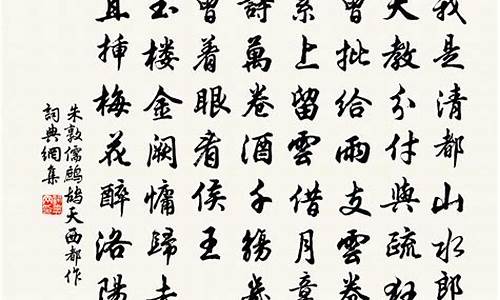 我是清都山水郎
天教分付與疏狂
曾批給雨支雲券
累上留雲借月章
詩萬卷酒千觴幾
曾着眼看侯王
玉楼金闕慵歸去
且插梅花醉洛陽
朱敦儒鷓鴣天西都作
詞典網集